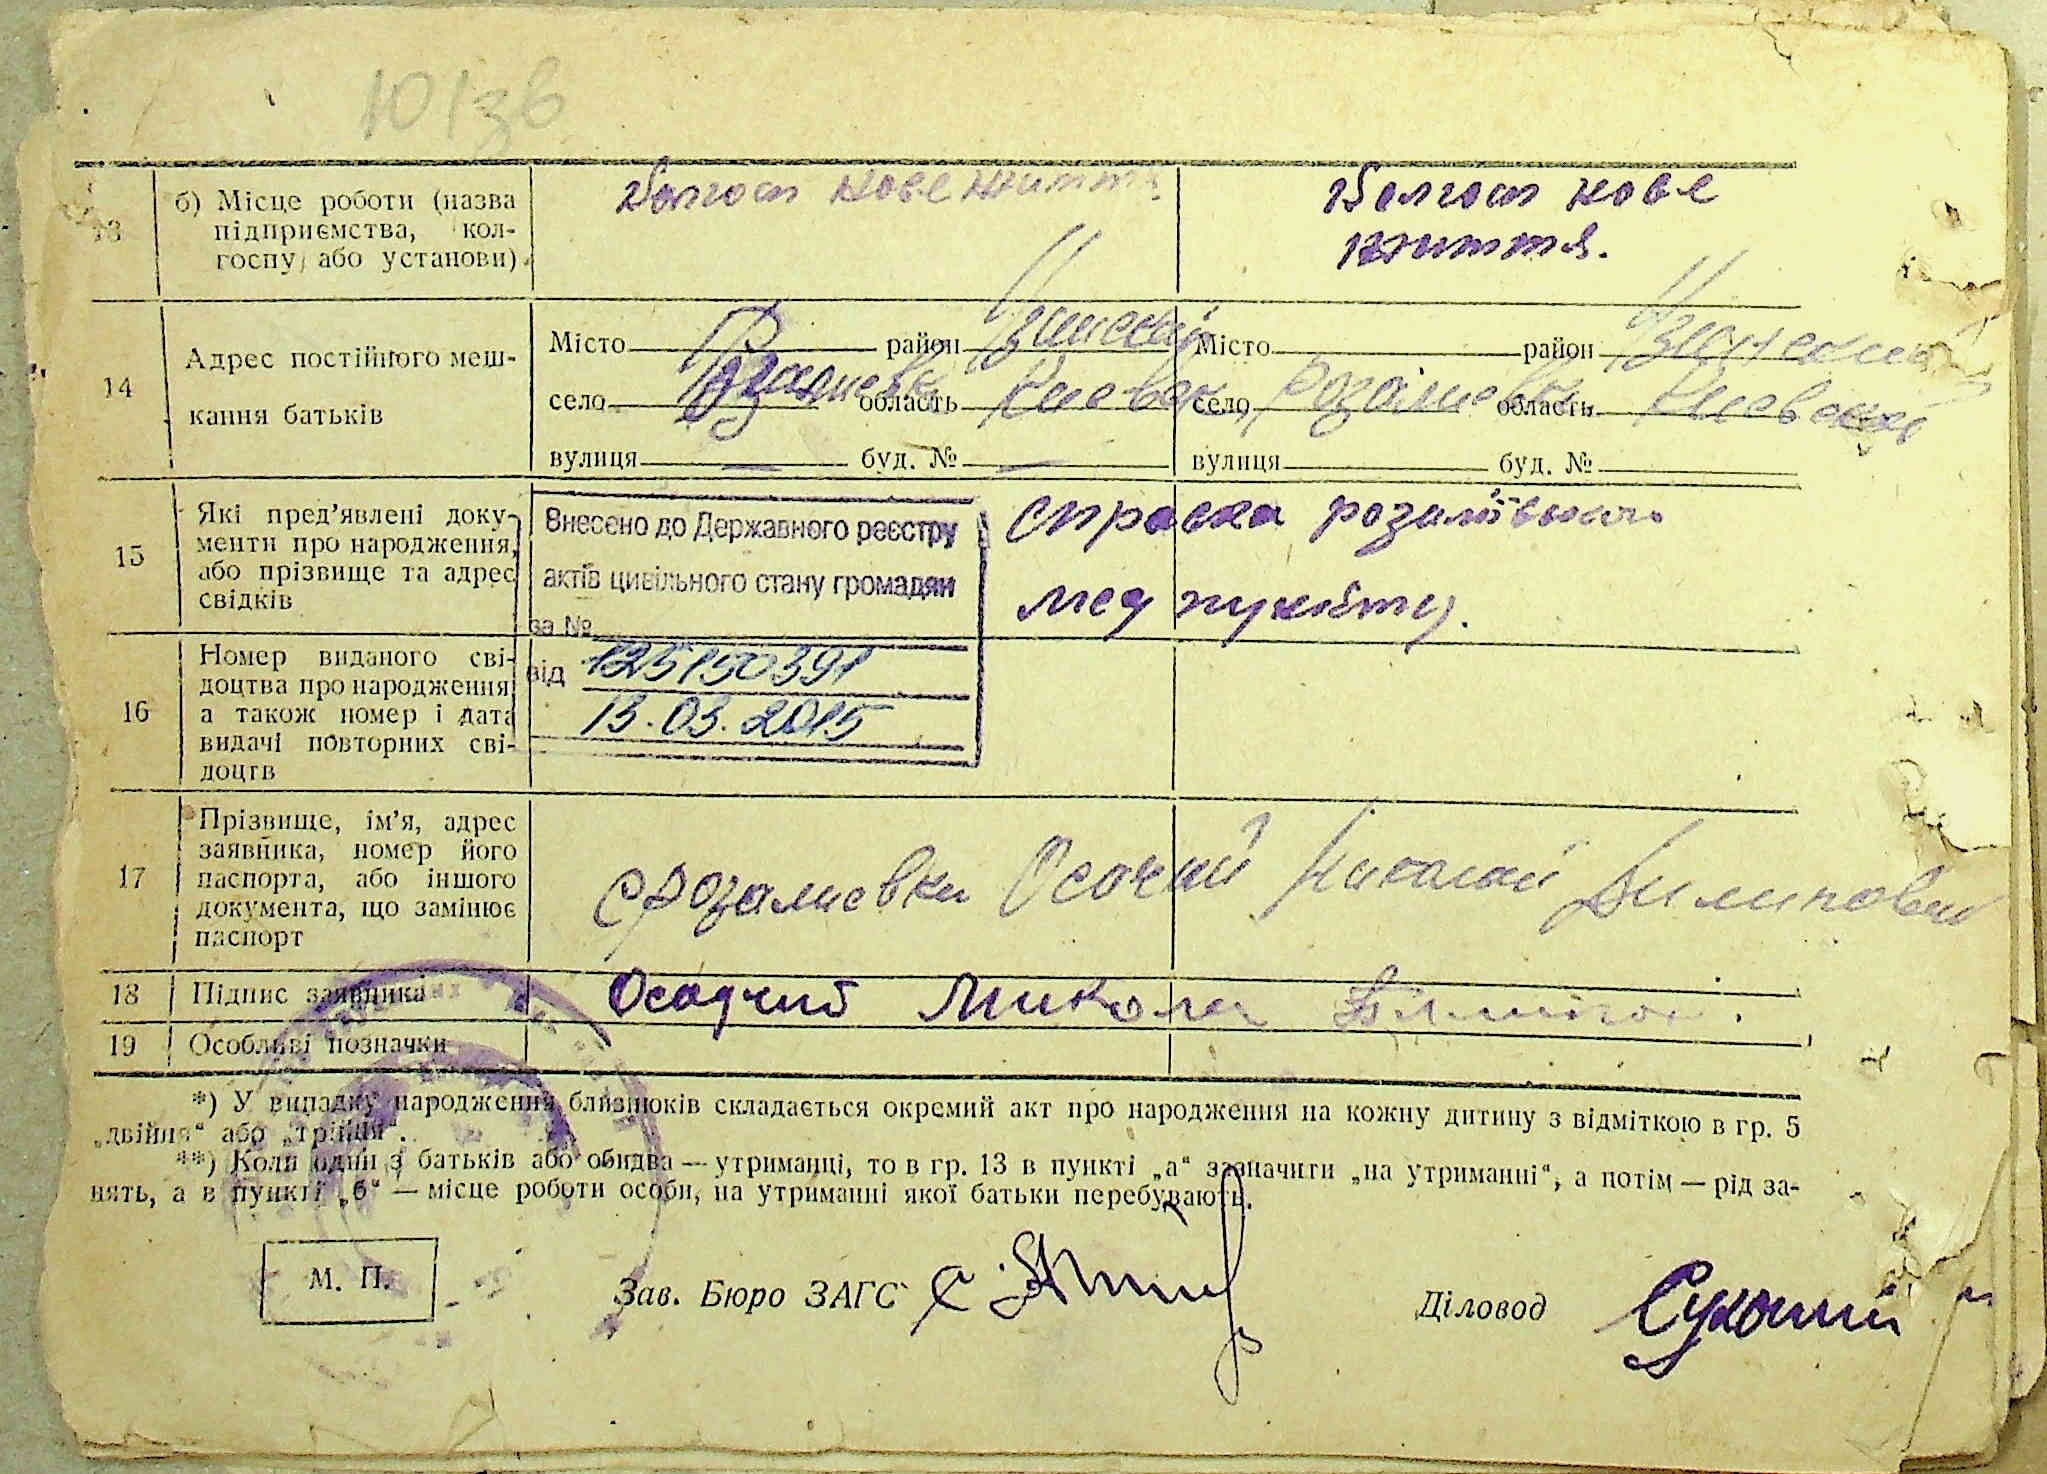 13
б) Місце роботи (назва
підприємства, кол-
госпу або установи)
Колгосп нове життя
Колгосп нове
життя.
14
Адрес постійного меш-
кання батьків
Місто район Узинский
село Розалиевка область Киевская
вулиця — буд. № —
Місто район Узинский
село Розалиевка область Киевская
вулиця буд. №
15
Які пред'явлені доку-
менти про народження,
або прізвище та адрес
свідків
Внесено до Державного реєстру
актів цивільного стану громадян
за №
125150391
від
13.03.2015
справка розаліївського
мед пункту.
16
Номер виданого сві-
доцтва про народження
а також номер і дата
видачі повторних сві-
доцтв
17
Прізвище, ім'я, адрес
заявника, номер його
паспорта, або іншого
документа, що замінює
паспорт
с Розалиевка Осадчий Николай
18
Підпис заявника
Осадчий Микола
19
Особливі позначки
*) У випадку народження близнюків складається окремий акт про народження на кожну дитину з відміткою в гр. 5
„двійня“ або „трійня“.
**) Коли один з батьків або обидва — утриманці, то в гр. 13 в пункті „а“ зазначити „на утриманні“, а потім — рід за-
нять, а в пункті „б“ — місце роботи особи, на утриманні якої батьки перебувають.
М. П.
Зав. Бюро ЗАГС
Діловод